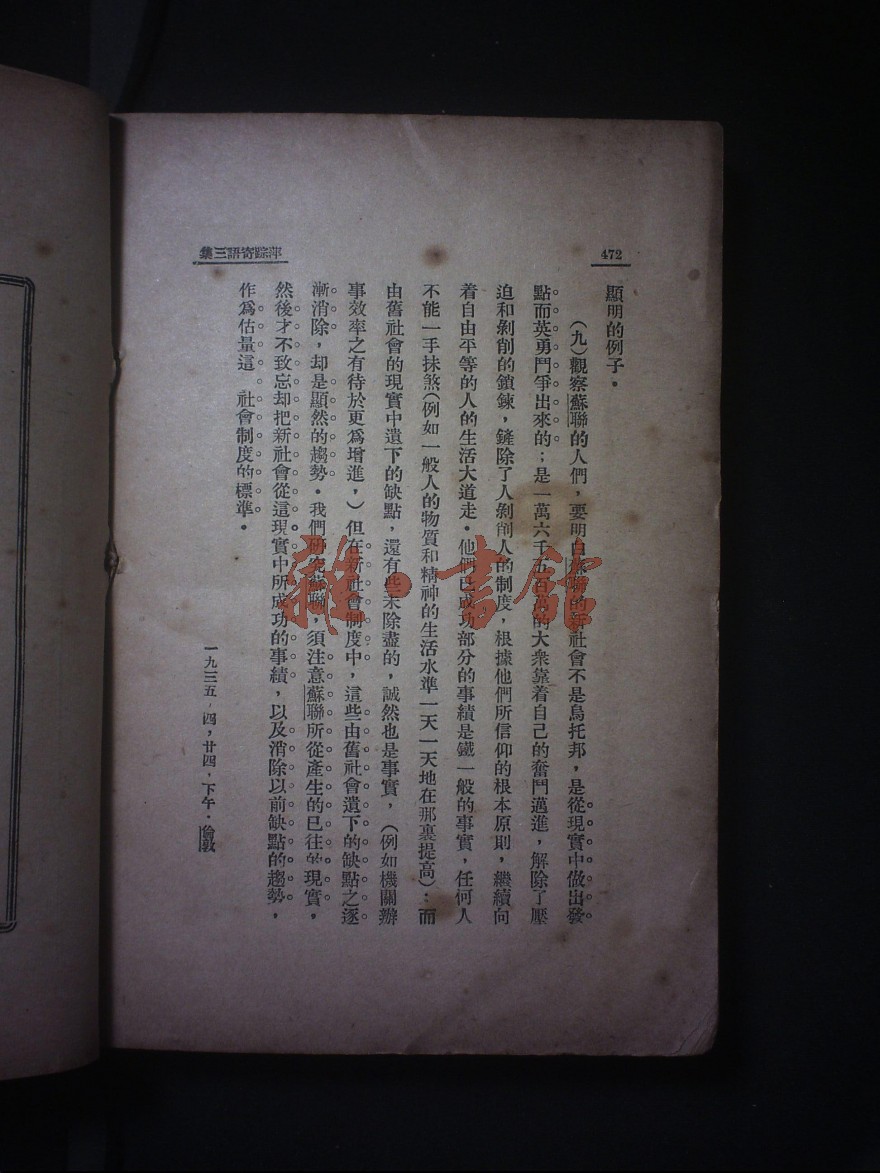 472
萍踪寄語三集
顯明的例子。
（九）觀察蘇聯的人們，要明白蘇聯的新社會不是烏托邦，是從現實中做出發
點而英勇鬥爭出來的；是一萬六千五百萬的大衆靠着自己的奮鬥邁進，解除了壓
迫和剝削的鎖鍊，鏟除了人剝削人的制度，根據他們所信仰的根本原則，繼續向
着自由平等的人的生活大道走。他們已成功部分的事績是鐵一般的事實，任何人
不能一手抹煞（例如一般人的物質和精神的生活水準一天一天地在那裏提高）；而
由舊社會的現實中遺下的缺點，還有些未除盡的，誠然也是事實，（例如機關辦
事效率之有待於更爲增進，）但在新社會制度中，這些由舊社會遺下的缺點之逐
漸消除，却是顯然的趨勢。我們研究蘇聯，須注意蘇聯所從產生的已往的現實，
然後才不致忘却把新社會從這現實中所成功的事績，以及消除以前缺點的趨勢，
作爲估量這 社會制度的標準。
一九三五，四，廿四，下午。倫敦
雜·書館